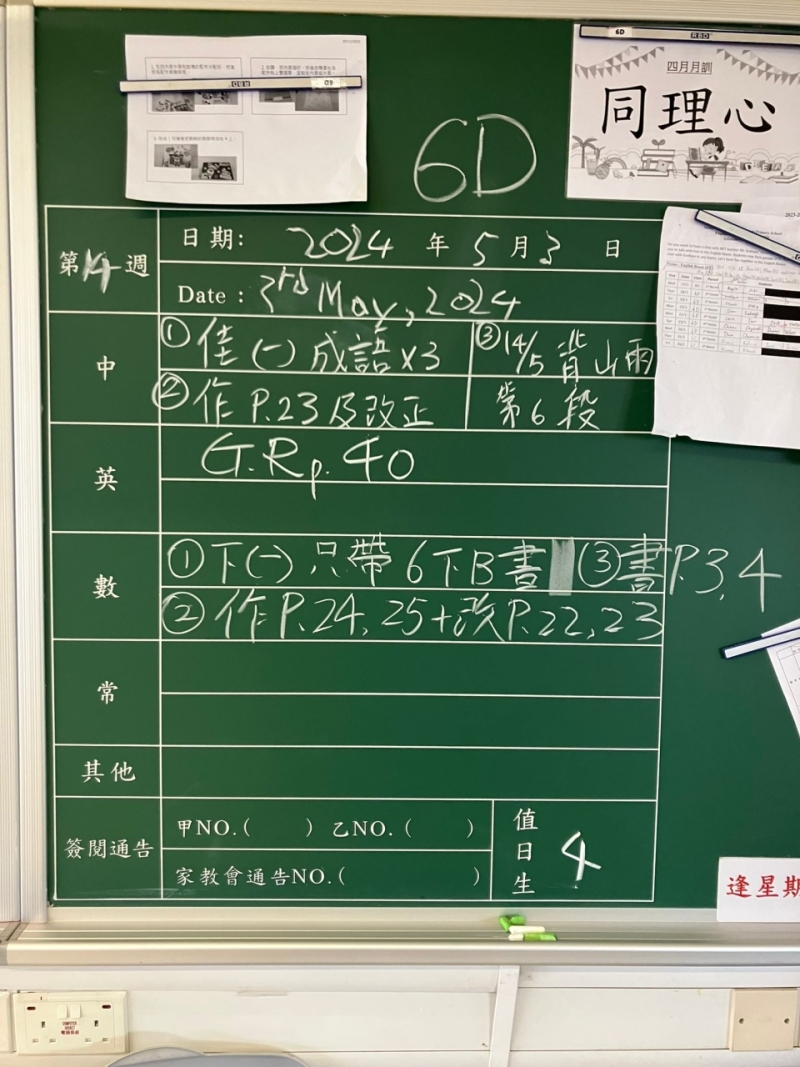 6D
6D
四月月訓
同理心
第14週
日期: 2024 年 5 月 3 日
Date : 3rd May, 2024
中
① 佳(一)成語x3
③ 14/5 背山雨
② 作 P.23及改正
第6段
英
G.R p. 40
數
① 下(一) 只帶 6下B書
③ 書P.3,4
② 作P.24, 25+改P.22, 23
常
其他
簽閱通告
甲NO.( ) 乙NO.( )
家教會通告NO.( )
值日生
4
逢星期